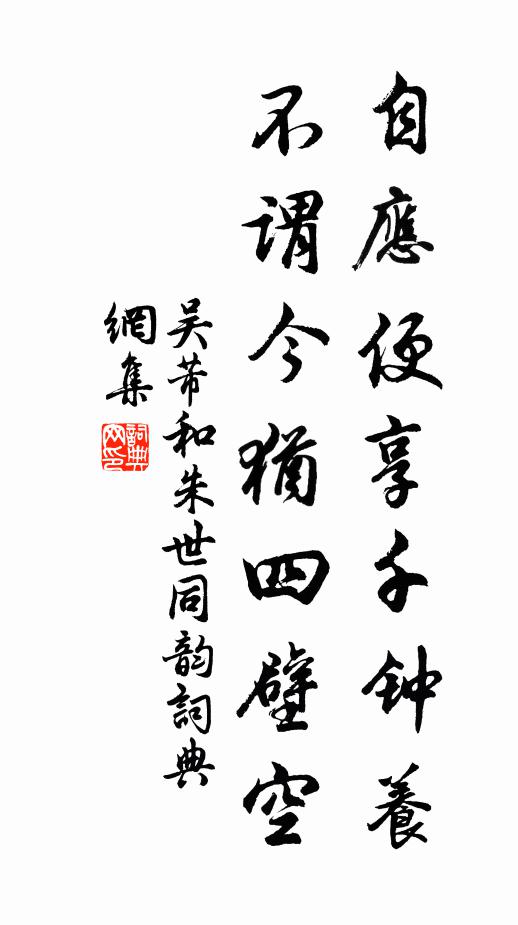 自應便享千钟養
不谓今猶四壁空
吴芾和朱世同韵詞典
網集
詞典
网印